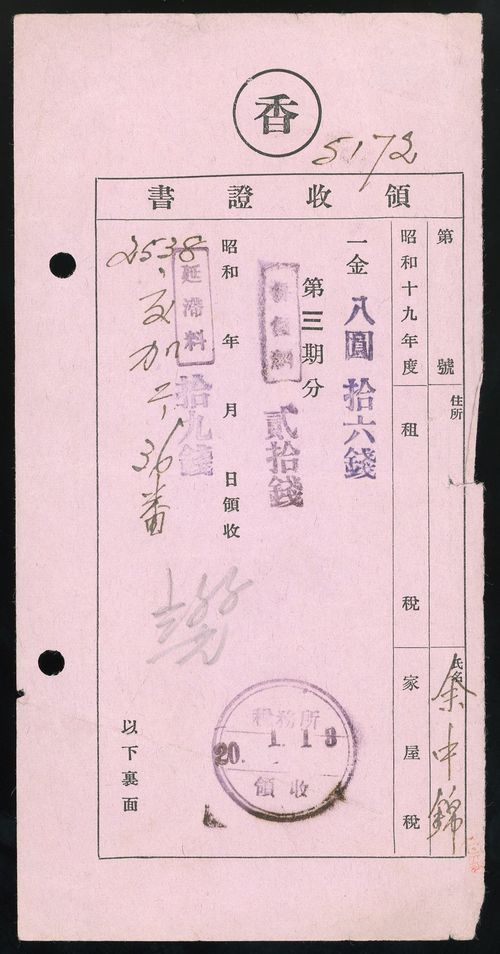 香
5172
領收證書
第 號
住所
氏名 余中錦
昭和十九年度 租稅 家屋稅
一金 八圓拾六錢
第三期分
貳拾錢
昭和 年 月 日領收
延滯料 拾九錢
2538
36番
稅務所
20. 1. 19
領收
以下裏面